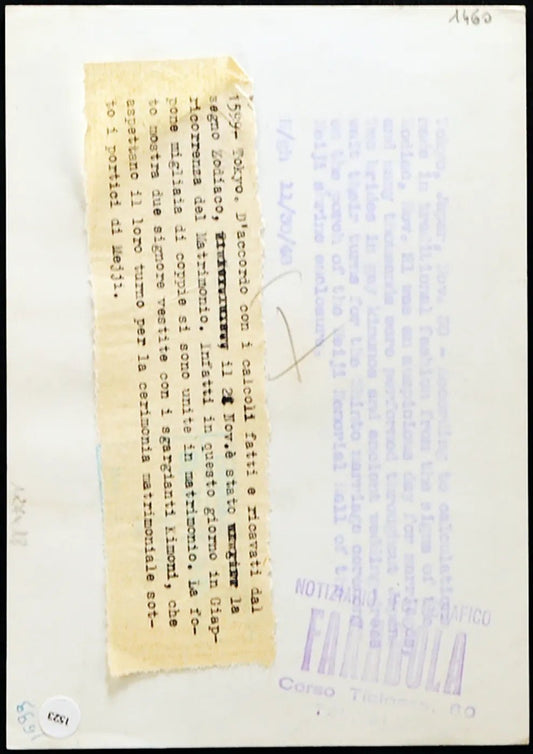 1460
1599- Tokyo. D'accordo con i calcoli fatti e ricavati dal
segno Zodiaco, il 21 Nov.è stato la
ricorrenza del Matrimonio. Infatti in questo giorno in Giap-
pone migliaia di coppie si sono unite in matrimonio. La fo-
to mostra due signore vestite con i sgargianti Kimoni, che
aspettano il loro turno per la cerimonia matrimoniale sot-
to i portici di Mejji.
Tokyo, Japan, Nov. 30 - According to calculations
made in traditional fashion from the signs of the
Zodiac, Nov. 21 was an auspicious day for marriages,
and many thousands were performed throughout
Two brides in gay kimonos and ancient wedding
wait their turns for the Shinto marriage ceremony
on the porch of the Meiji Memorial Hall of the
Meiji shrine enclosure.
11/30/60
NOTIZIARIO
FARABOLA
Corso 60
1523
1599